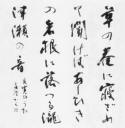 草の庵に寝ざめ
て聞けばあしひき
の岩根に落る瀧
津瀬の音